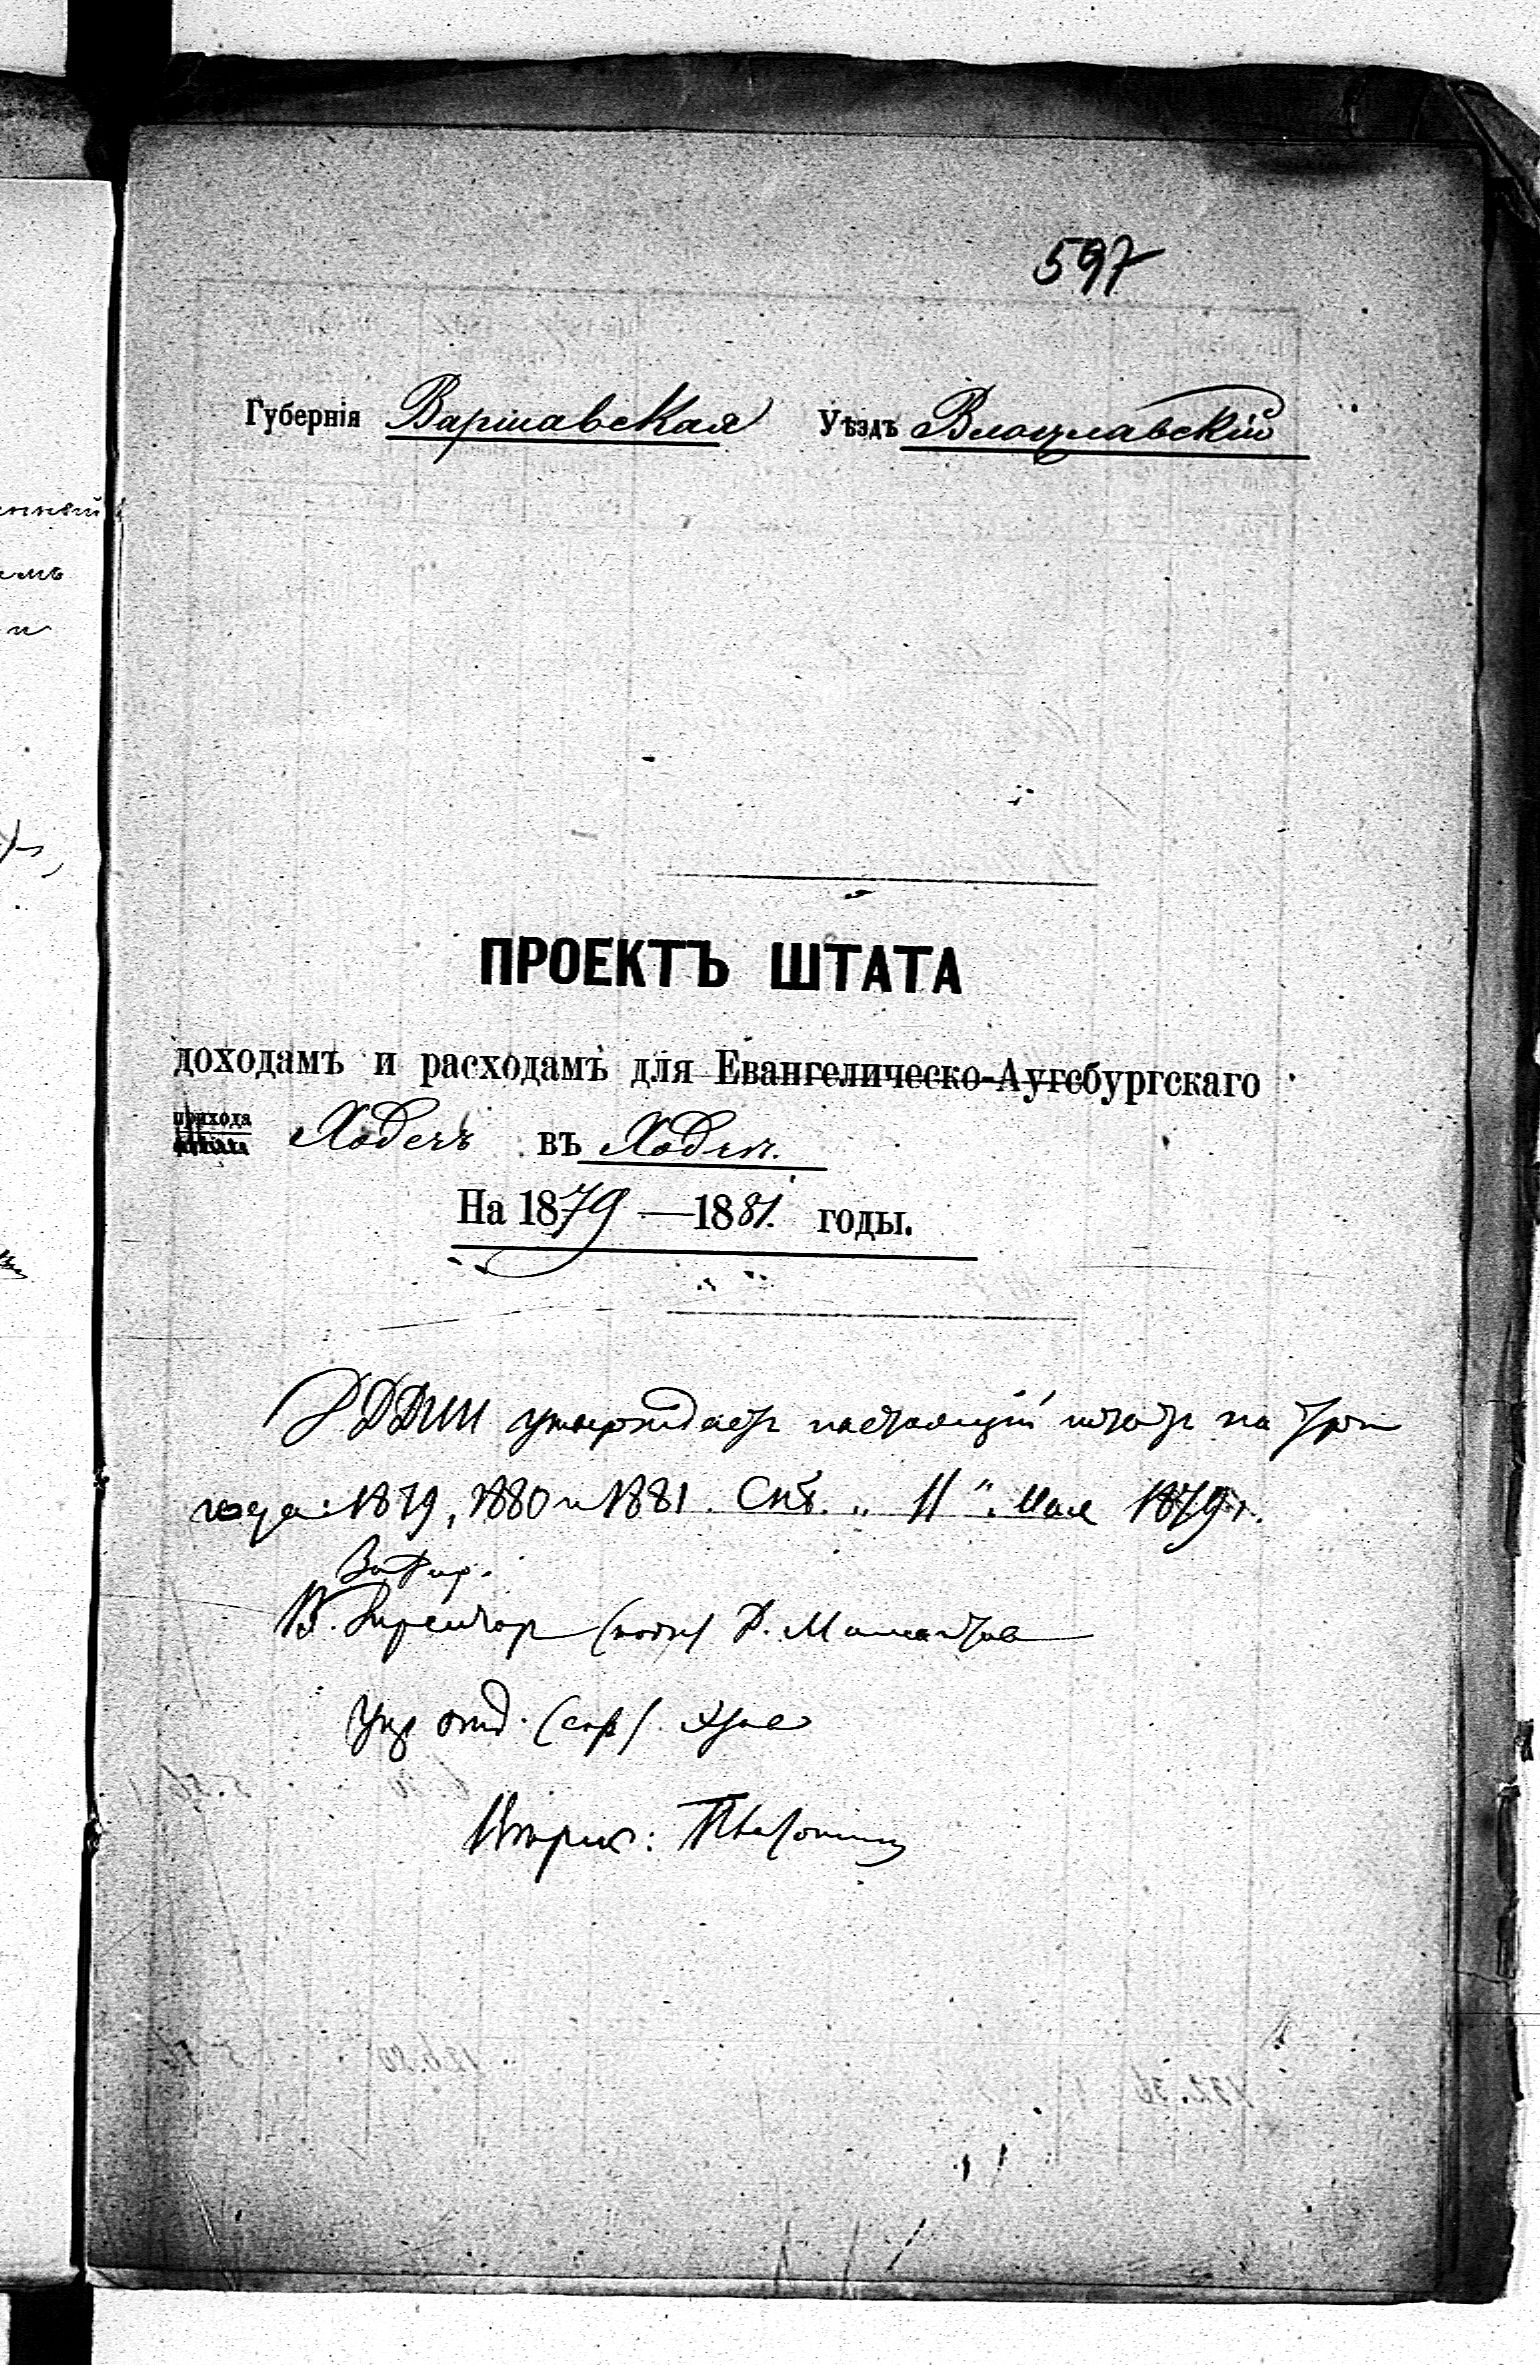 597
Губернія Варшавская Уѣздъ Влоцлавскій
ПРОЕКТЪ ШТАТА
доходамъ и расходамъ для Евангелическо-Аугсбургскаго
прихода Ходечъ въ Ходеч.
На 1879—1881 годы.
утверждаетъ настоящій штатъ на три
года: 1879, 1880 и 1881. Спб. „ 11 “ Мая 1879 г.
В. Директор (подп)
Упр отд. (скр)